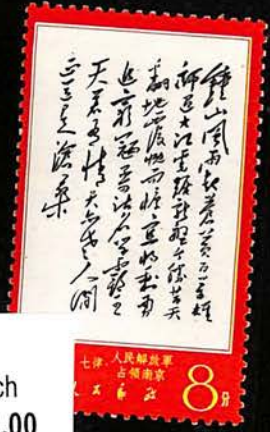 鍾山風雨起蒼黃百萬雄
師過大江虎踞龍盤今勝昔天
翻地覆慨而慷宜將剩勇
追窮寇不可沽名學霸王
天若有情天亦老人間
正道是滄桑
七律、人民解放軍
占領南京
人民邮政
8分
ch
.00